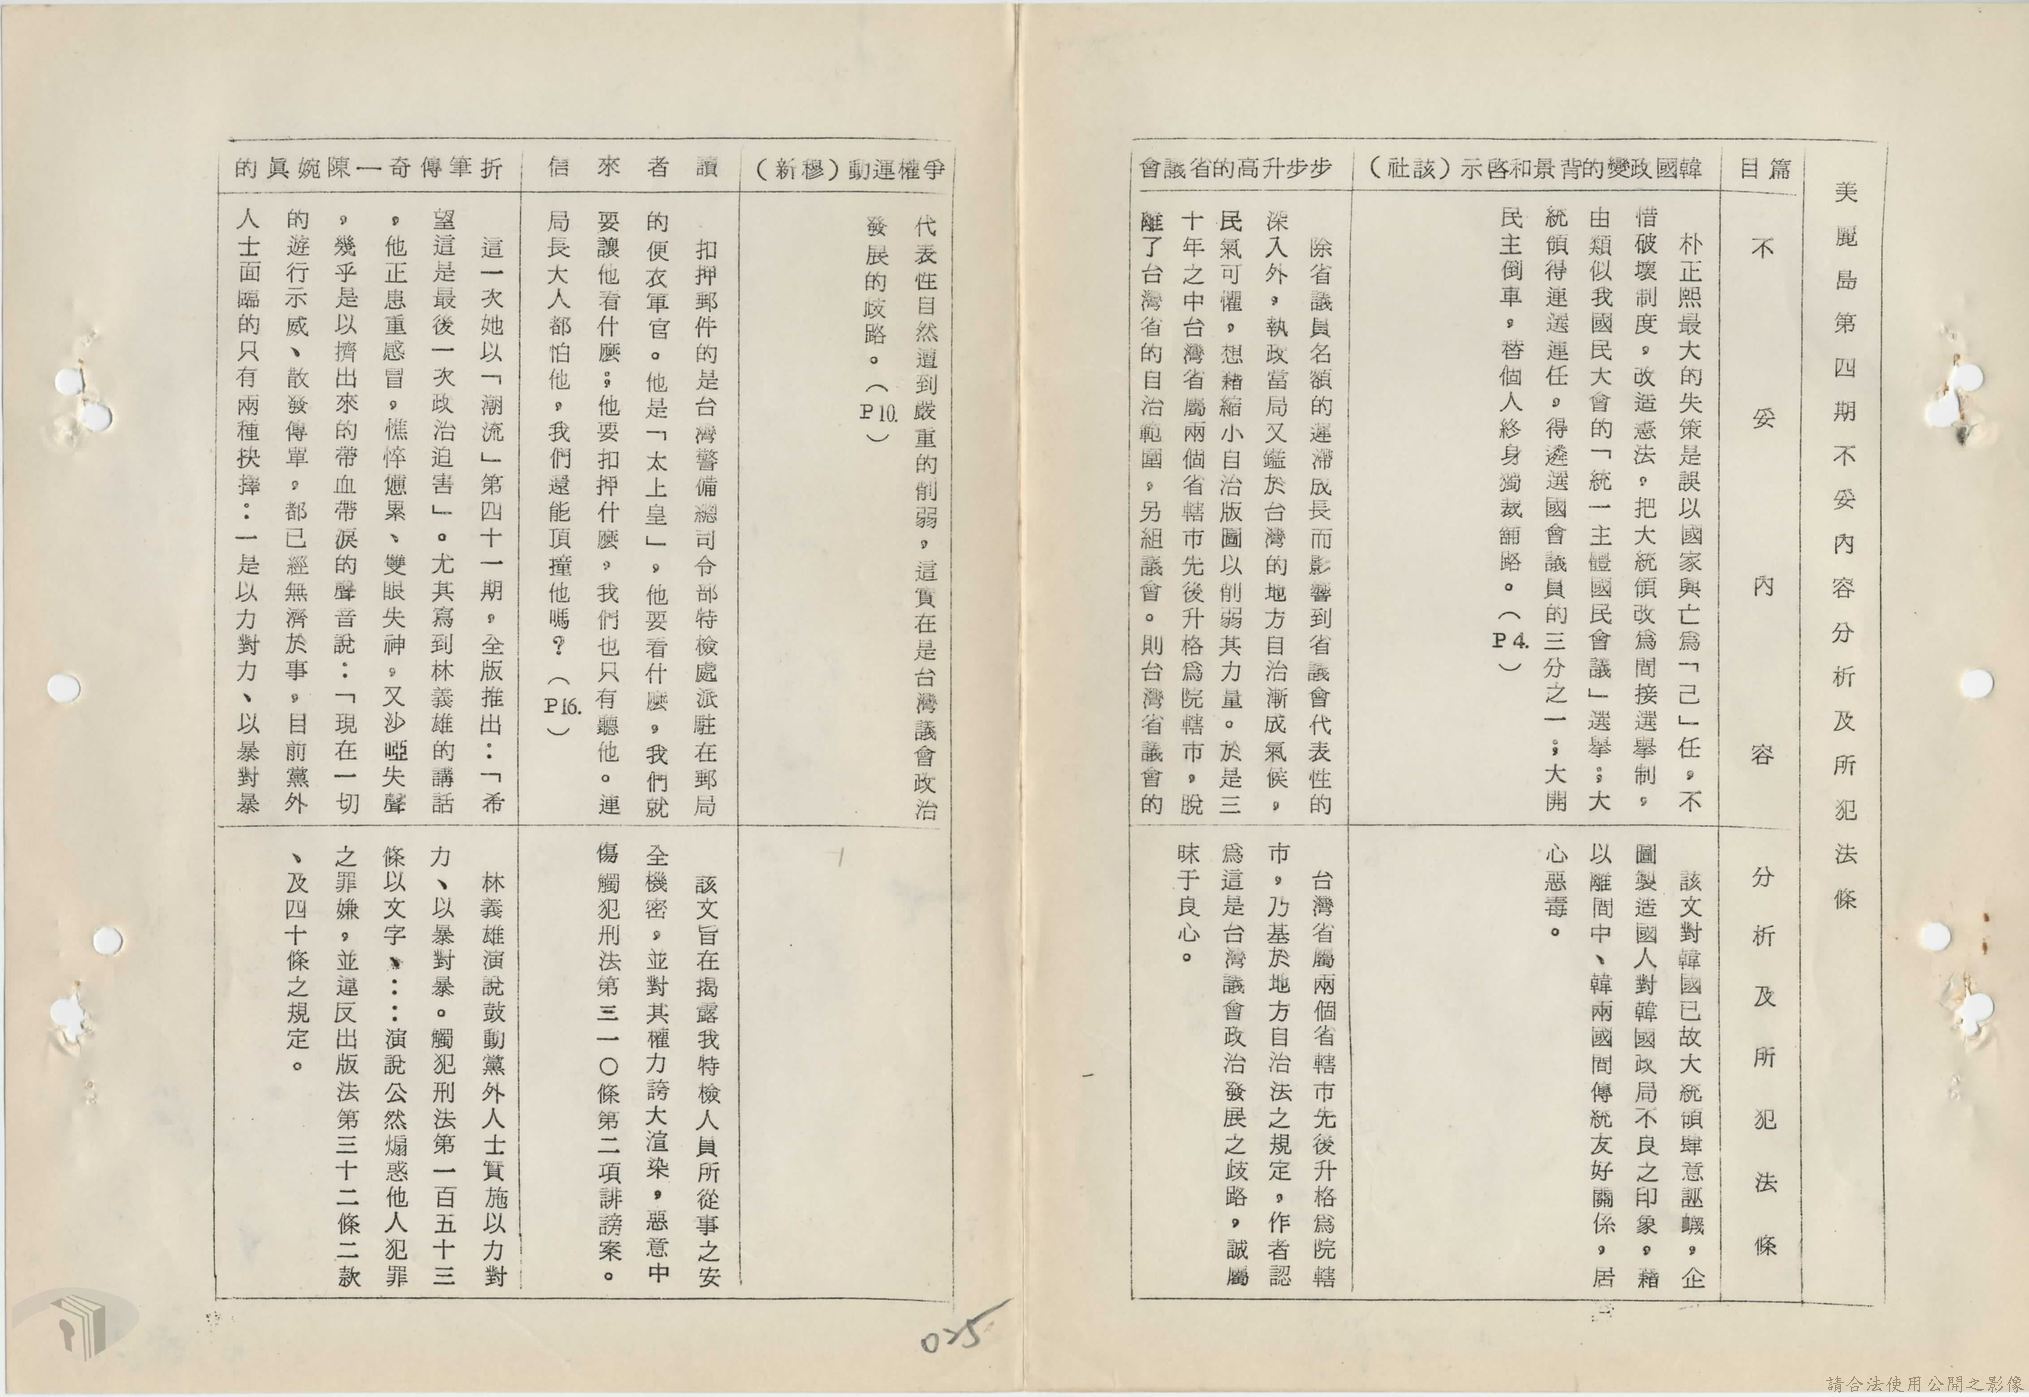 美麗島第四期不妥內容分析及所犯法條
篇目
不妥內容
分析及所犯法條
韓國政變的背景和啓示(該社)
朴正熙最大的失策是誤以國家興亡爲「己」任，不
惜破壞制度，改造憲法，把大統領改爲間接選舉制，
由類似我國民大會的「統一主體國民會議」選舉；大
統領得連選連任，得遴選國會議員的三分之一；大開
民主倒車，替個人終身獨裁舖路。（P4.）
該文對韓國已故大統領肆意誣衊，企
圖製造國人對韓國政局不良之印象，藉
以離間中、韓兩國間傳統友好關係，居
心惡毒。
步步升高的省議會
除省議員名額的遲滯成長而影響到省議會代表性的
深入外，執政當局又鑑於台灣的地方自治漸成氣候，
民氣可懼，想藉縮小自治版圖以削弱其力量。於是三
十年之中台灣省屬兩個省轄市先後升格爲院轄市，脫
離了台灣省的自治範圍，另組議會。則台灣省議會的
台灣省屬兩個省轄市先後升格爲院轄
市，乃基於地方自治法之規定，作者認
爲這是台灣議會政治發展之歧路，誠屬
昧于良心。
爭權運動(穆新)
代表性自然遭到嚴重的削弱，這實在是台灣議會政治
發展的歧路。（P10.）
讀者來信
扣押郵件的是台灣警備總司令部特檢處派駐在郵局
的便衣軍官。他是「太上皇」，他要看什麼，我們就
要讓他看什麼；他要扣押什麼，我們也只有聽他。連
局長大人都怕他，我們還能頂撞他嗎？（P16.）
該文旨在揭露我特檢人員所從事之安
全機密，並對其權力誇大渲染，惡意中
傷觸犯刑法第三一〇條第二項誹謗案。
折筆傳奇一陳婉眞的
這一次她以「潮流」第四十一期，全版推出：「希
望這是最後一次政治迫害」。尤其寫到林義雄的講話
，他正患重感冒，憔悴憊累、雙眼失神，又沙啞失聲
，幾乎是以擠出來的帶血帶淚的聲音說：「現在一切
的遊行示威、散發傳單，都已經無濟於事，目前黨外
人士面臨的只有兩種抉擇：一是以力對力、以暴對暴
林義雄演說鼓動黨外人士實施以力對
力、以暴對暴。觸犯刑法第一百五十三
條以文字、：：演說公然煽惑他人犯罪
之罪嫌，並違反出版法第三十二條二款
、及四十條之規定。
025
請合法使用公開之影像